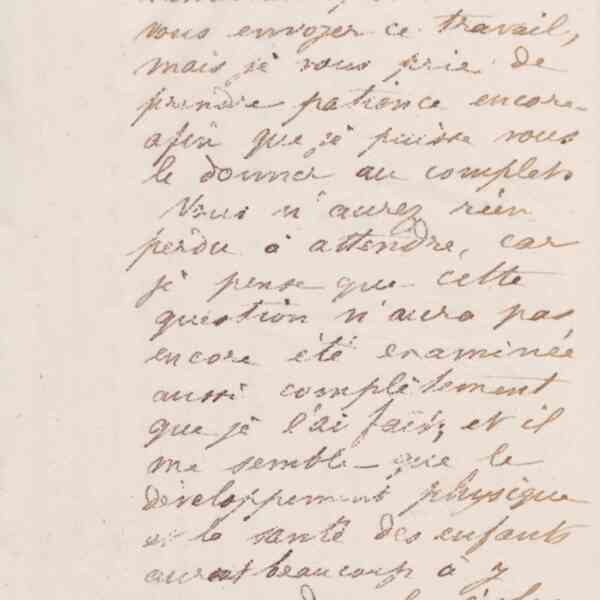 vous envoyer ce travail,
mais je vous prie de
prendre patience encore
afin que je puisse vous
le donner au complet.
Vous n'aurez rien
perdu à attendre, car
je pense que cette
question n'aura pas
encore été examinée
aussi complètement
que je l'ai fait, et il
me semble que le
développement physique
et la santé des enfants
auront beaucoup à y